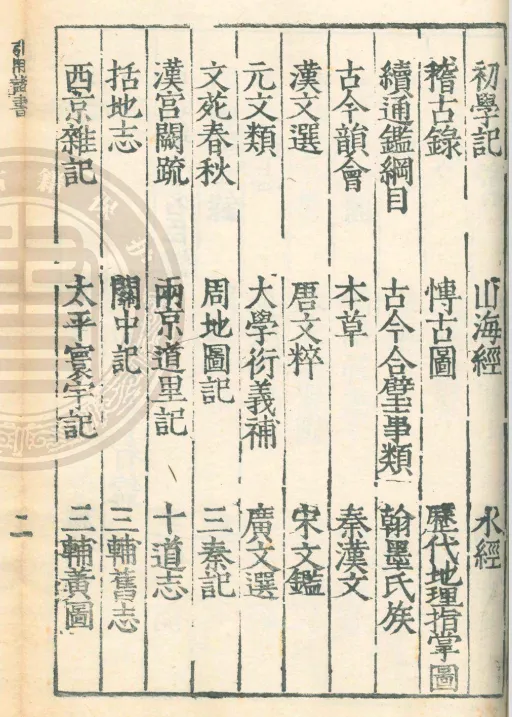 初學記 山海經 水經
稽古錄 博古圖 歷代地理指掌圖
續通鑑綱目 古今合璧事類 翰墨氏族
古今韻會 本草 秦漢文
漢文選 唐文粹 宋文鑑
元文類 大學衍義補 廣文選
文苑春秋 周地圖記 三秦記
漢宮闕疏 兩京道里記 十道志
括地志 關中記 三輔舊志
西京雜記 太平寰宇記 三輔黃圖
引用諸書 二